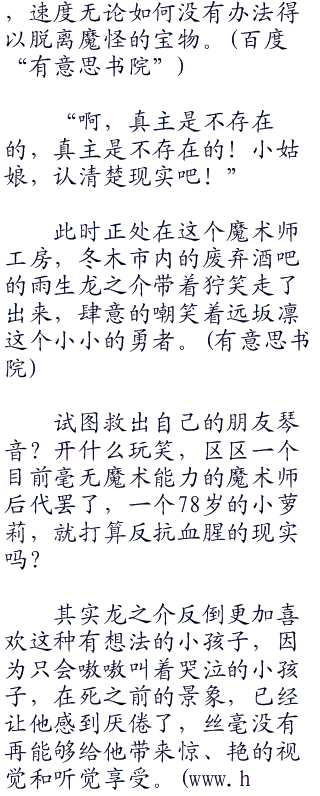 ，速度无论如何没有办法得
以脱离魔怪的宝物。(百度
“有意思书院”)
“啊，真主是不存在
的，真主是不存在的！小姑
娘，认清楚现实吧！”
此时正处在这个魔术师
工房，冬木市内的废弃酒吧
的雨生龙之介带着狞笑走了
出来，肆意的嘲笑着远坂凛
这个小小的勇者。(有意思书
院)
试图救出自己的朋友琴
音？开什么玩笑，区区一个
目前毫无魔术能力的魔术师
后代罢了，一个78岁的小萝
莉，就打算反抗血腥的现实
吗？
其实龙之介反倒更加喜
欢这种有想法的小孩子，因
为只会嗷嗷叫着哭泣的小孩
子，在死之前的景象，已经
让他感到厌倦了，丝毫没有
再能够给他带来惊、艳的视
觉和听觉享受。(www.h